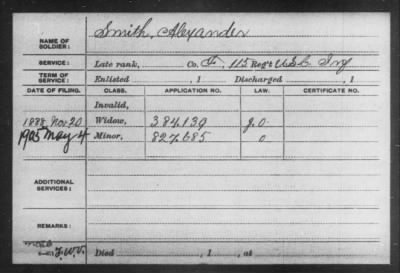 NAME OF SOLDIER: Smith, Alexander
SERVICE: Late rank, Co. F, 115 Reg't U.S.C. Inf
TERM OF SERVICE: Enlisted , 1 Discharged , 1
DATE OF FILING. CLASS. APPLICATION NO. LAW. CERTIFICATE NO.
Invalid,
1888 Nov 20 Widow, 384139 G.O.
1905 May 4 Minor, 827685 O.
ADDITIONAL SERVICES:
REMARKS:
J.W.V. Died , 1 , at